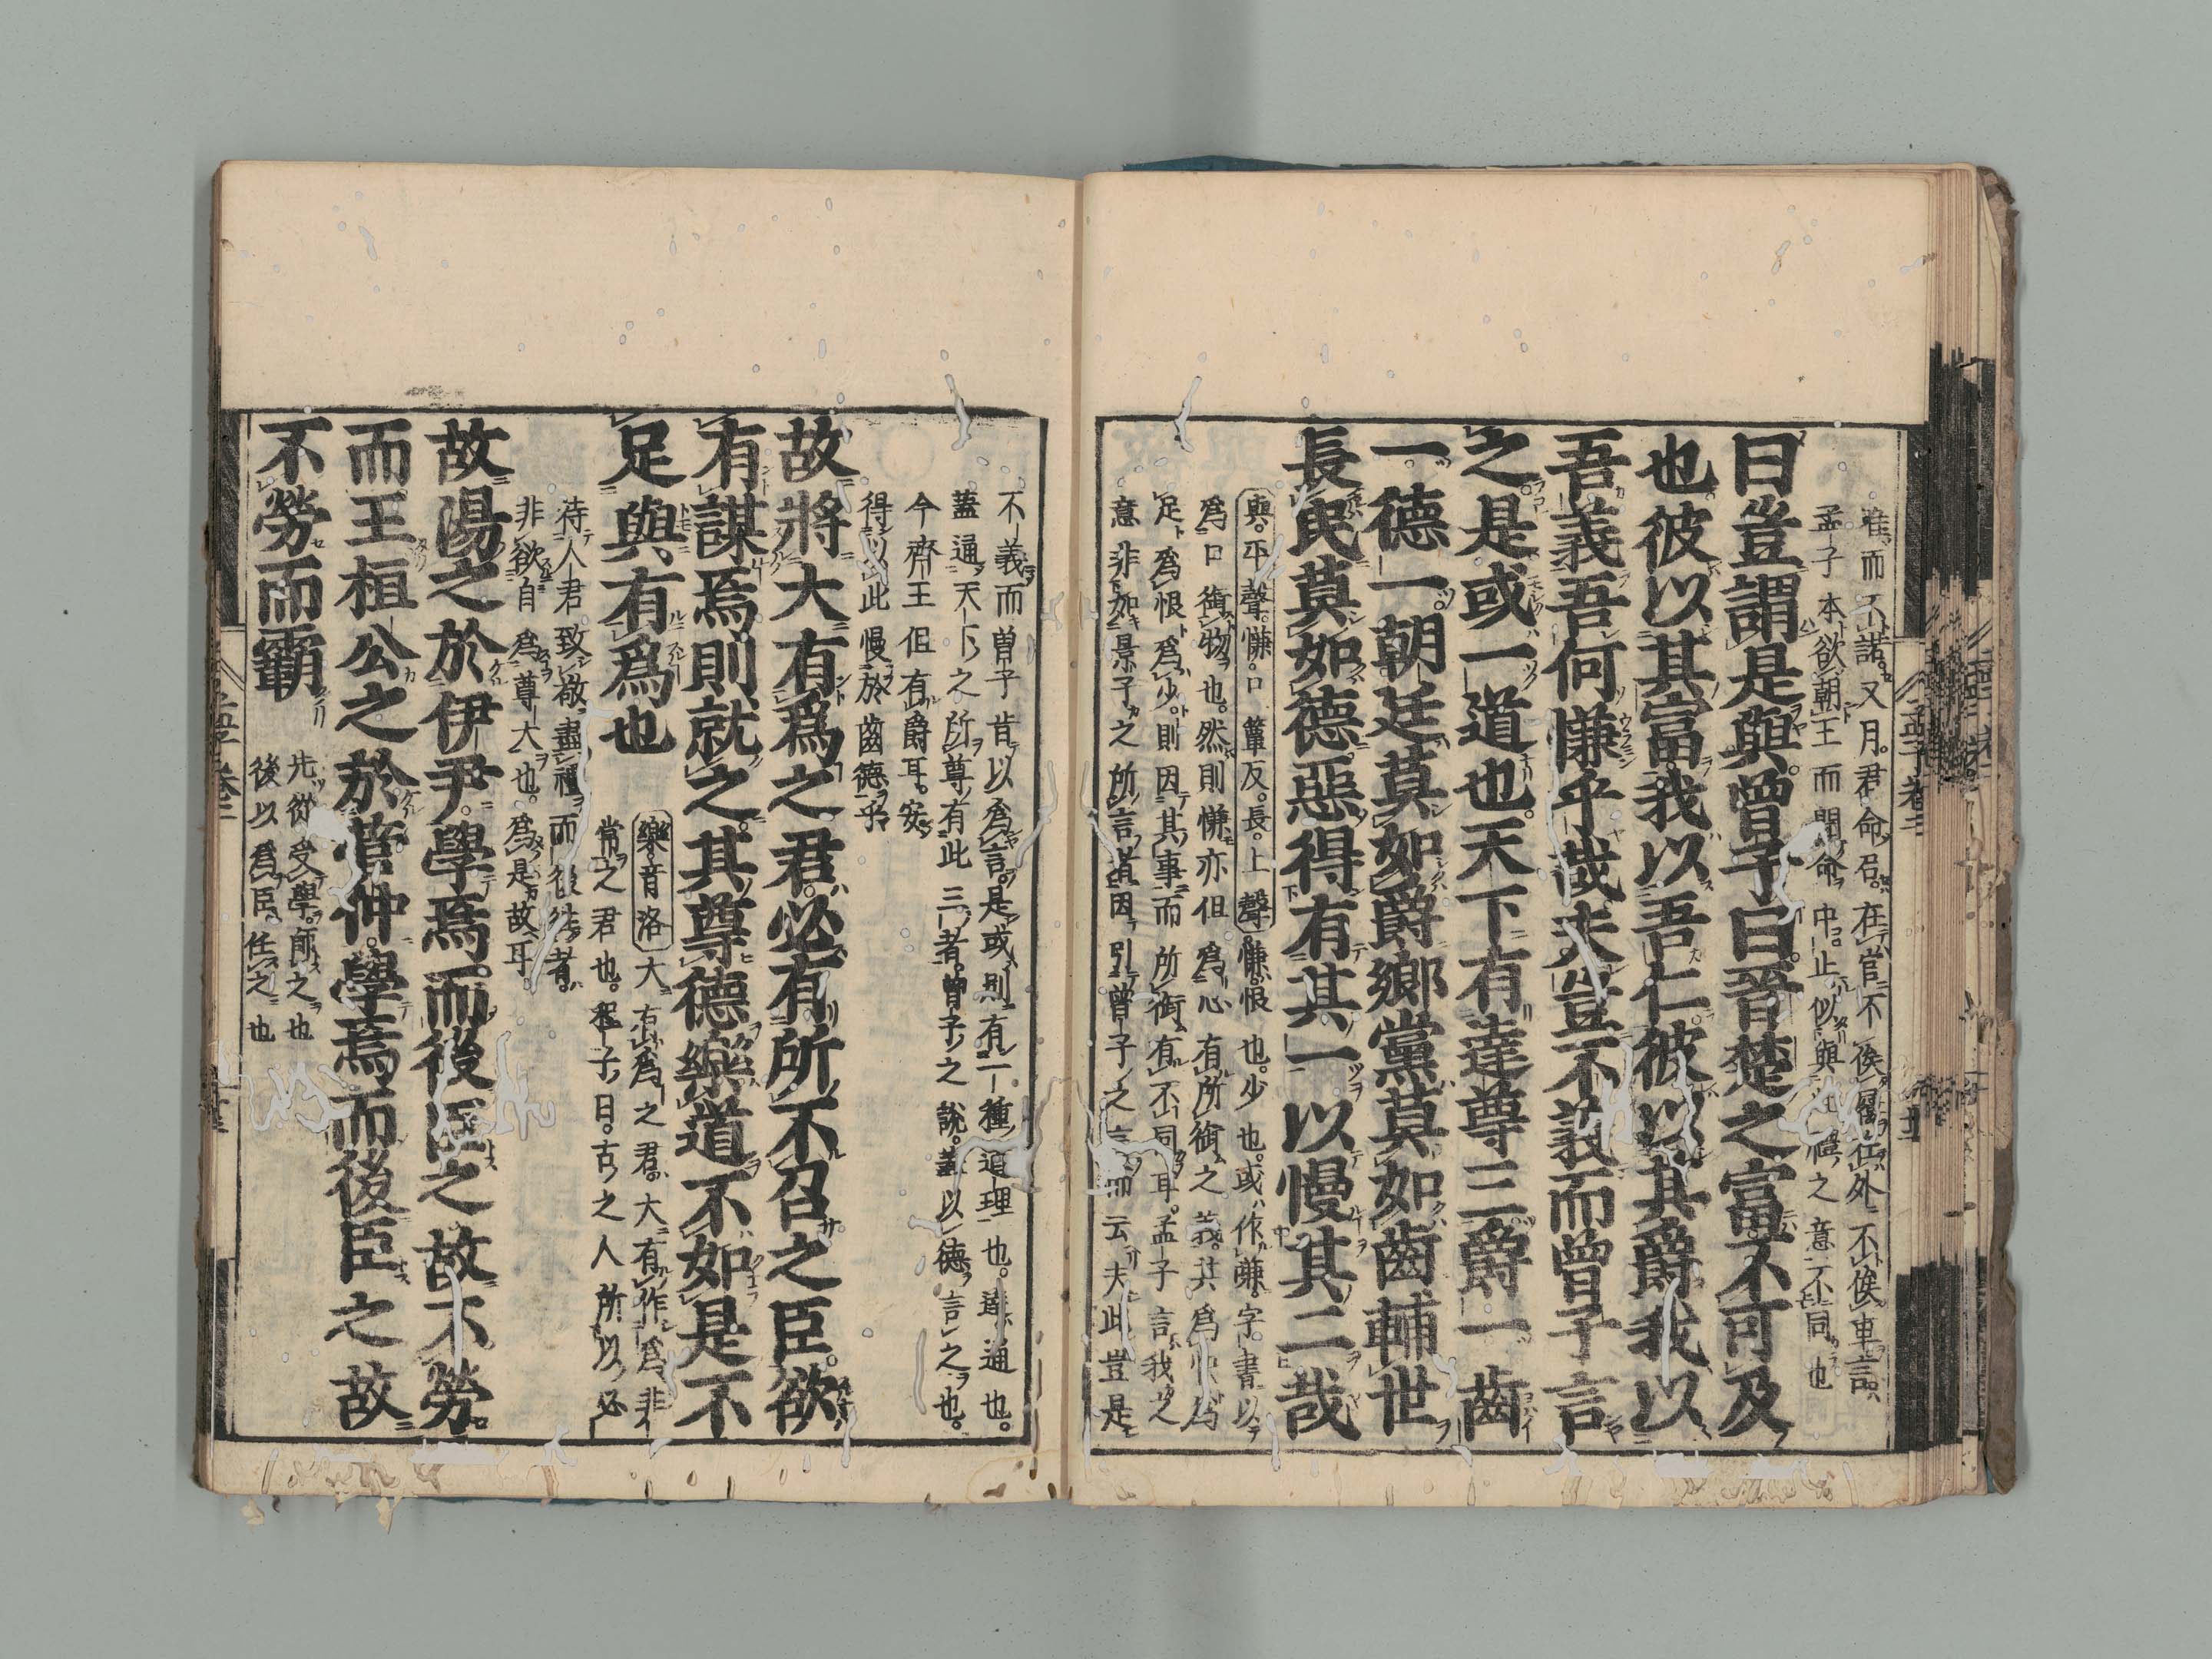 唯而不諾又曰君命召在官不俟屨在外不俟車言
孟子本欲朝王而聞命中止似與此禮之意不同也
曰豈謂是與曾子曰晉楚之富不可及
也彼以其富我以吾仁彼以其爵我以
吾義吾何慊乎哉夫豈不義而曾子言
之是或一道也天下有達尊三爵一齒
一德一朝廷莫如爵鄉黨莫如齒輔世
長民莫如德惡得有其一以慢其二哉
與平聲慊口簟反長上聲慊恨也少也或作嗛字書以
爲口銜物也然則慊亦但爲心有所銜之義其爲快爲
足爲恨爲少則因其事而所銜有不同耳孟子言我之
意非如景子之所言者因引曾子之言而云夫此豈是
不義而曾子肯以爲言是或別有一種道理也達通也
蓋通天下之所尊有此三者曾子之說蓋以德言之也
今齊王但有爵耳安
得以此慢於齒德乎
故將大有爲之君必有所不召之臣欲
有謀焉則就之其尊德樂道不如是不
足與有爲也
樂音洛大有爲之君大有作爲非
常之君也程子曰古之人所以必
待人君致敬盡禮而後往者
非欲自爲尊大也爲是故耳
故湯之於伊尹學焉而後臣之故不勞
而王桓公之於管仲學焉而後臣之故
不勞而霸
先從受學師之也
後以爲臣任之也
孟子卷二